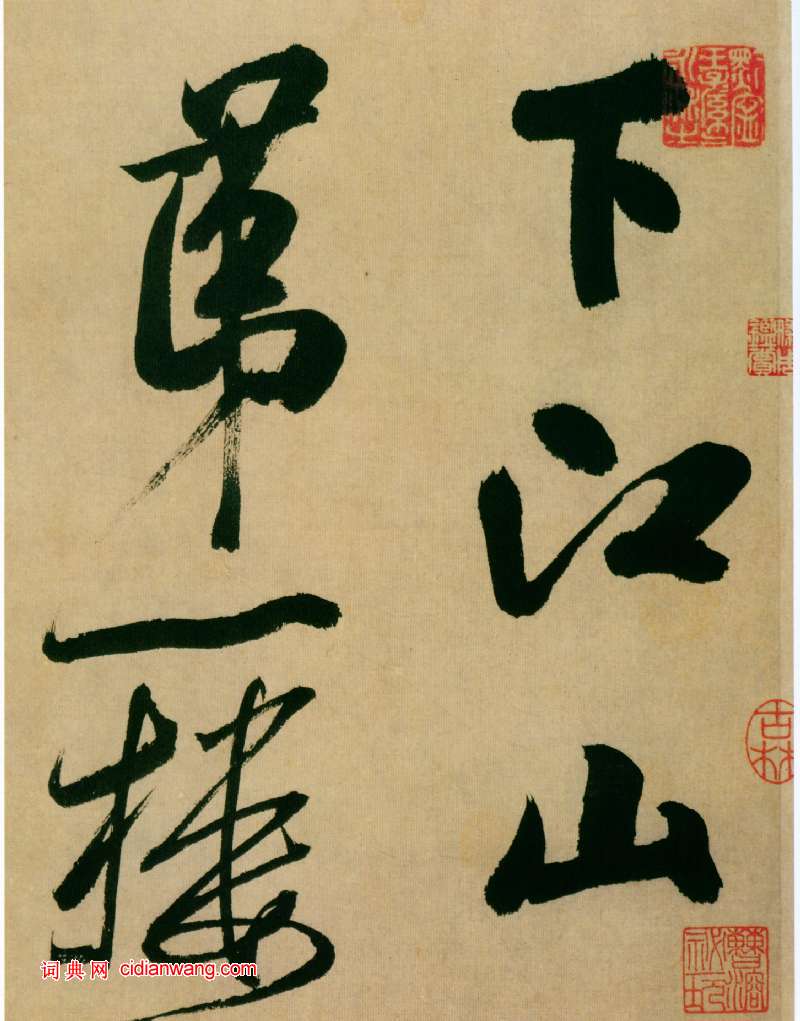 下江山
第一樓
古林
詞典网 cidianwang.com